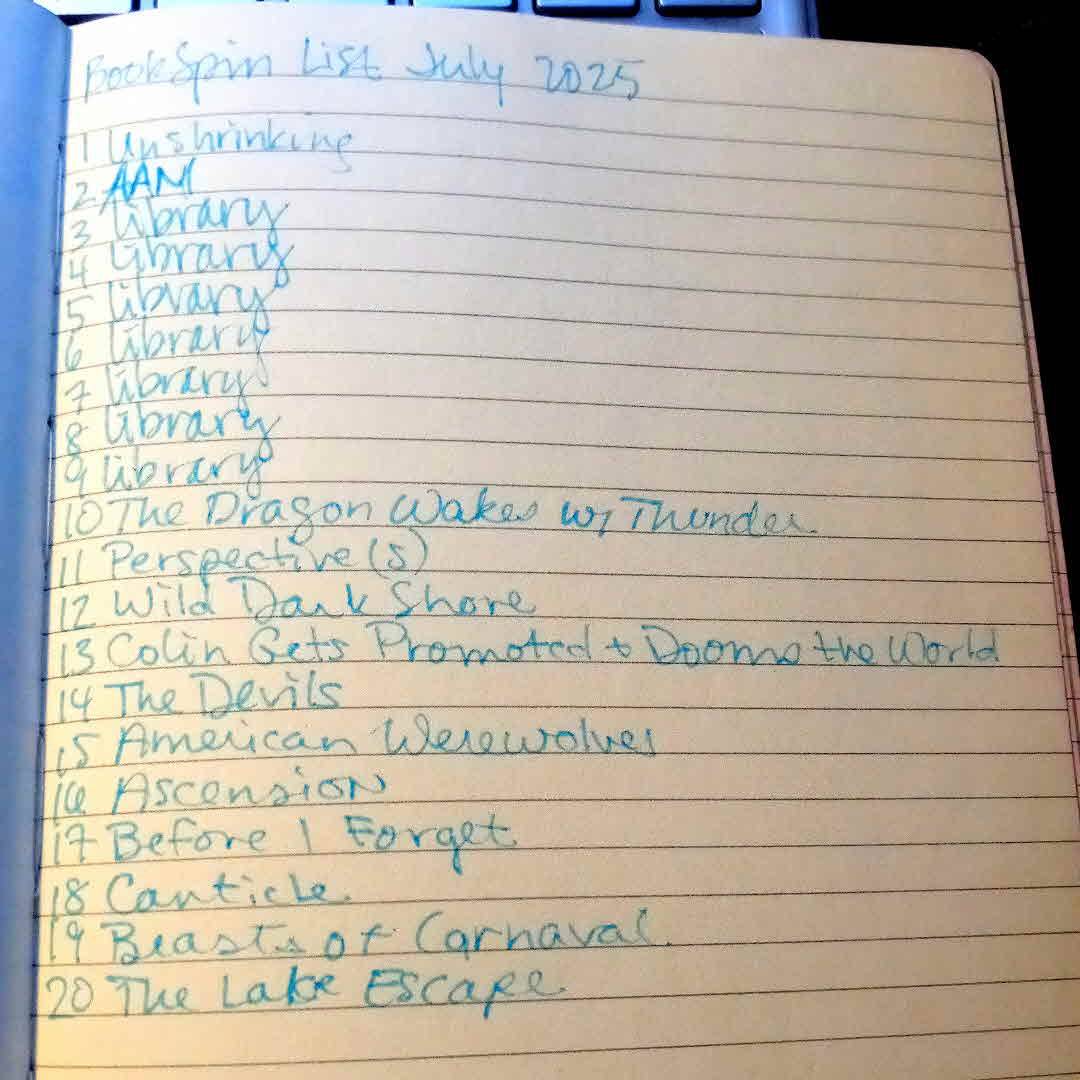 BookSpin List July 2025
1 Unshrinking
2 AAM
3 library
4 library
5 library
6 library
7 library
8 library
9 library
10 The Dragon Wakes w/ Thunder
11 Perspective(s)
12 Wild Dark Shore
13 Colin Gets Promoted + Dooms the World
14 The Devils
15 American Werewolves
16 Ascension
17 Before I Forget
18 Canticle
19 Beasts of Carnaval
20 The Lake Escape